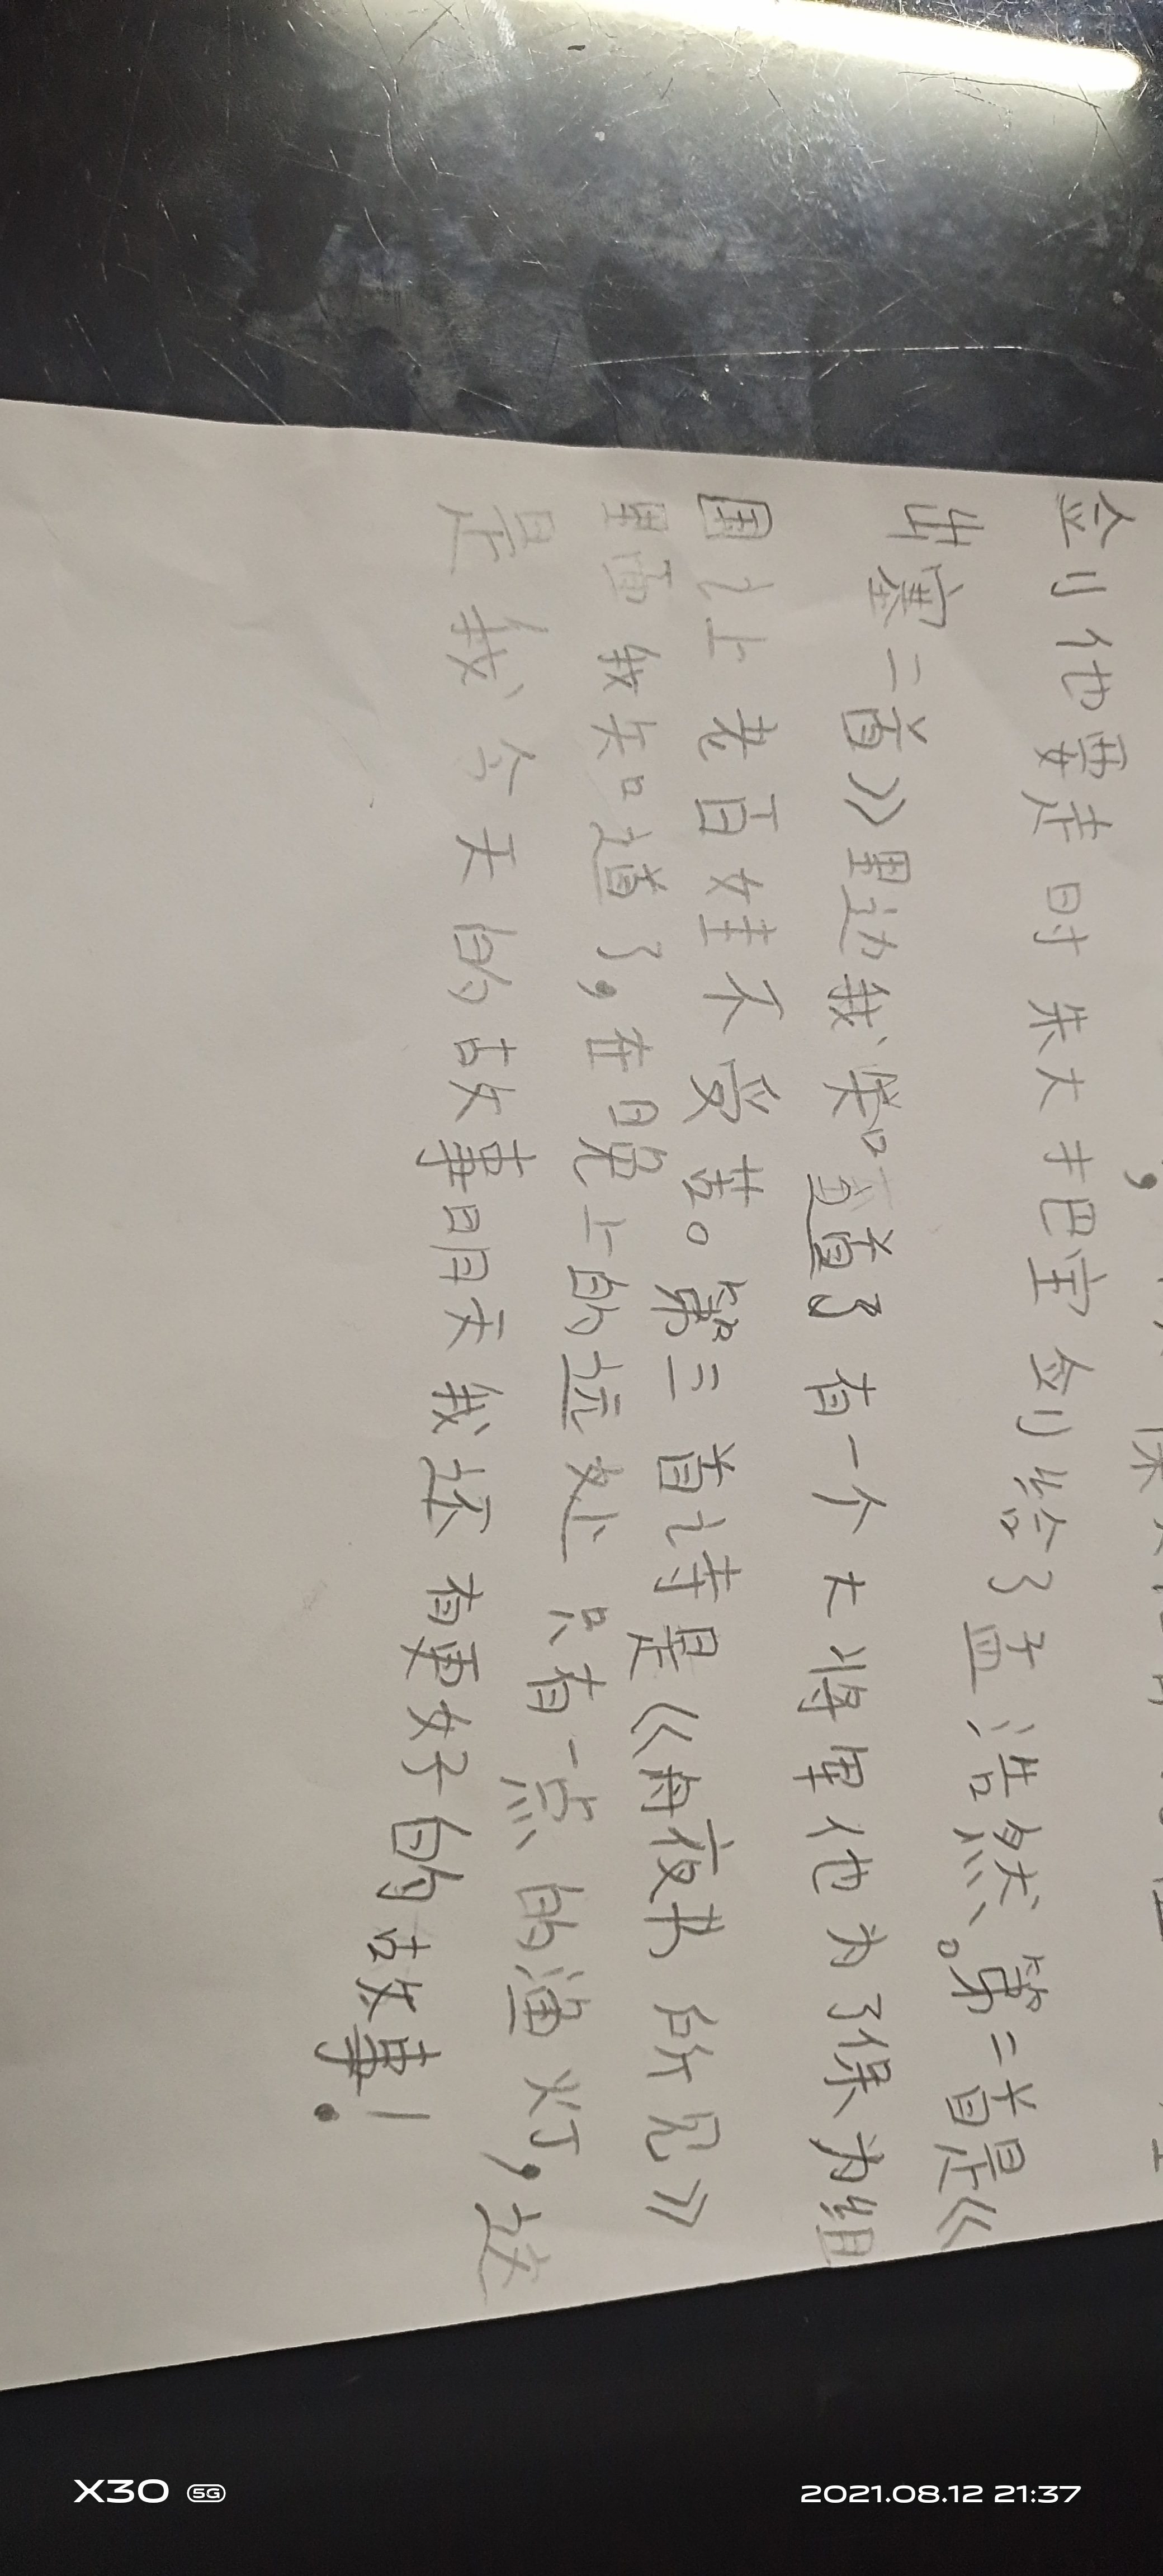 剑他要走时朱大才巴宝剑给了孟浩然。第二首是《
出塞二首》里边我知道了有一个大将军他为了保为组
国让上老百娃不受苦。第三首诗是《舟夜书所见》
里面我知道了,在晚上的远处只有一点的渔灯,这
是我今天的故事明天我还有更好的故事!
X30 5G
2021.08.12 21:37